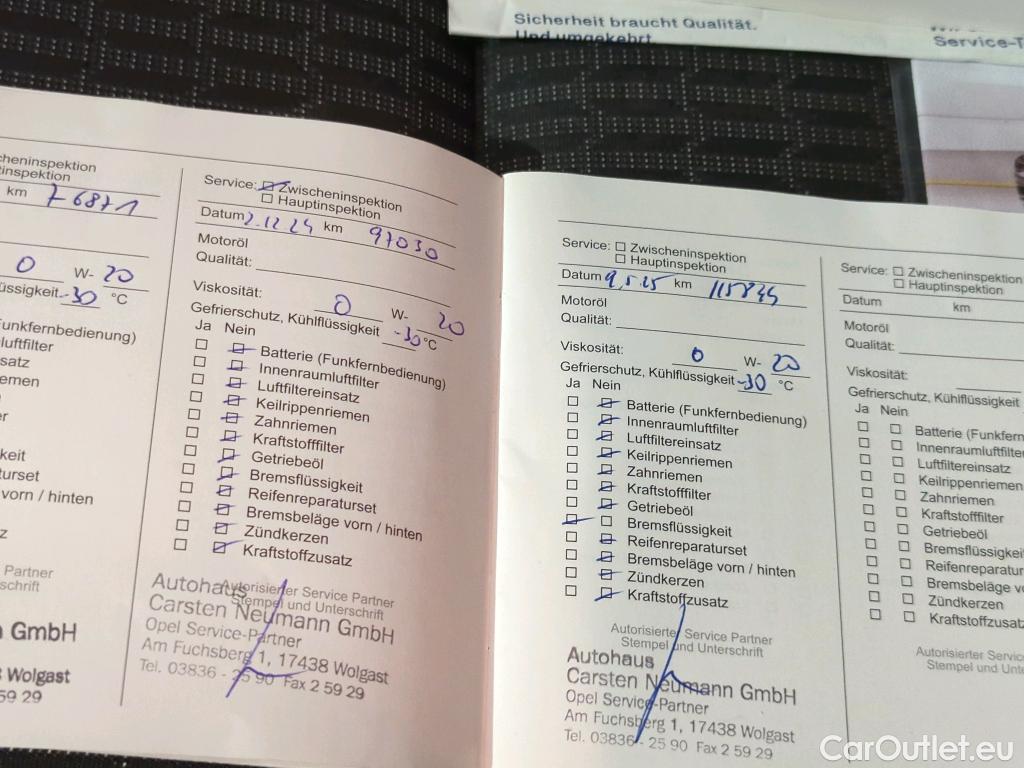 Sicherheit braucht Qualität.
Und umgekehrt.
Service-T
cheninspektion
tinspektion
km 76871
0 W- 20
üssigkeit -30 °C
Funkfernbedienung)
luftfilter
nsatz
iemen
keit
turset
vorn / hinten
z
Partner
schrift
n GmbH
8 Wolgast
59 29
Service: Zwischeninspektion
Hauptinspektion
Datum 2.12.24 km 97030
Motoröl
Qualität:
Viskosität: 0 W- 20
Gefrierschutz, Kühlflüssigkeit -30 °C
Ja Nein
Batterie (Funkfernbedienung)
Innenraumluftfilter
Luftfiltereinsatz
Keilrippenriemen
Zahnriemen
Kraftstofffilter
Getriebeöl
Bremsflüssigkeit
Reifenreparaturset
Bremsbeläge vorn / hinten
Zündkerzen
Kraftstoffzusatz
Autorisierter Service Partner
Stempel und Unterschrift
Autohaus
Carsten Neumann GmbH
Opel Service-Partner
Am Fuchsberg 1, 17438 Wolgast
Tel. 03836 - 25 90 Fax 2 59 29
Service: Zwischeninspektion
Hauptinspektion
Datum 9.5.25 km 115845
Motoröl
Qualität:
Viskosität: 0 W- 20
Gefrierschutz, Kühlflüssigkeit -30 °C
Ja Nein
Batterie (Funkfernbedienung)
Innenraumluftfilter
Luftfiltereinsatz
Keilrippenriemen
Zahnriemen
Kraftstofffilter
Getriebeöl
Bremsflüssigkeit
Reifenreparaturset
Bremsbeläge vorn / hinten
Zündkerzen
Kraftstoffzusatz
Autorisierter Service Partner
Stempel und Unterschrift
Autohaus
Carsten Neumann GmbH
Opel Service-Partner
Am Fuchsberg 1, 17438 Wolgast
Tel. 03836 - 25 90 Fax 2 59 29
Service: Zwischeninspektion
Hauptinspektion
Datum km
Motoröl
Qualität:
Viskosität:
Gefrierschutz, Kühlflüssigkeit
Ja Nein
Batterie (Funkfern
Innenraumluftfilte
Luftfiltereinsatz
Keilrippenriemen
Zahnriemen
Kraftstofffilter
Getriebeöl
Bremsflüssigkei
Reifenreparatu
Bremsbeläge vo
Zündkerzen
Kraftstoffzusat
Autorisierter Servic
Stempel und Unte
CarOutlet.eu